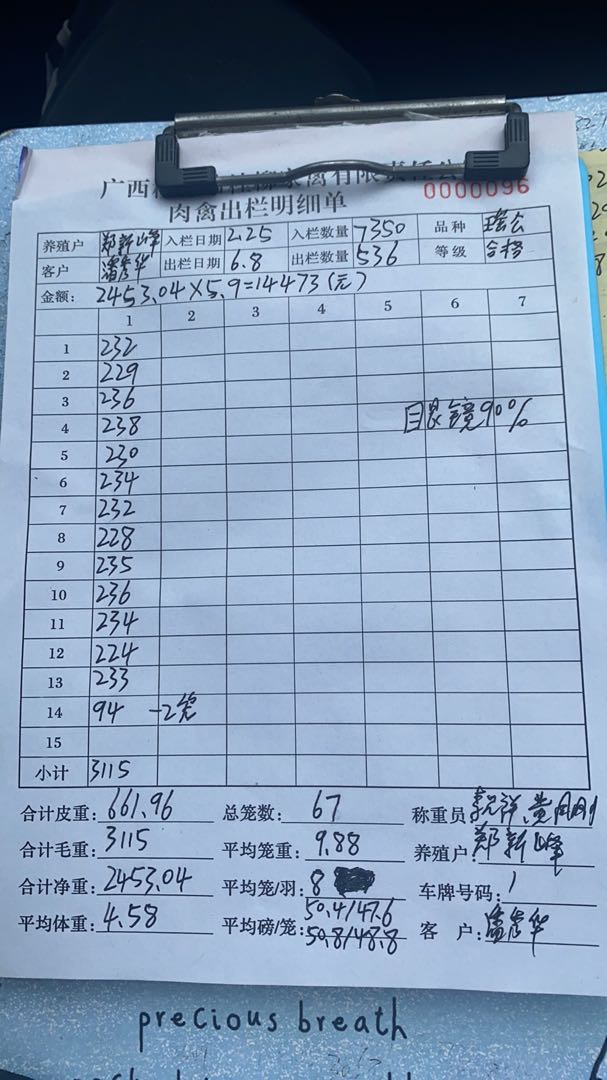 广西 家禽有限责任公
肉禽出栏明细单
0000096
养殖户 郑新峰 入栏日期 2.25 入栏数量 7350 品种
客户 潘彦华 出栏日期 6.8 出栏数量 536 等级 合格
金额: 2453.04×5.9=14473(元)
1 2 3 4 5 6 7
1 232
2 229
3 236
4 238 目艮镜90%
5 230
6 234
7 232
8 228
9 235
10 236
11 234
12 224
13 233
14 94 -2笼
15
小计 3115
合计皮重: 661.96 总笼数: 67 称重员:
合计毛重: 3115 平均笼重: 9.88 养殖户: 郑新峰
合计净重: 2453.04 平均笼/羽: 8 车牌号码: /
平均体重: 4.58 平均磅/笼: 50.4/47.6 50.8/48.8 客户: 潘彦华
precious breath